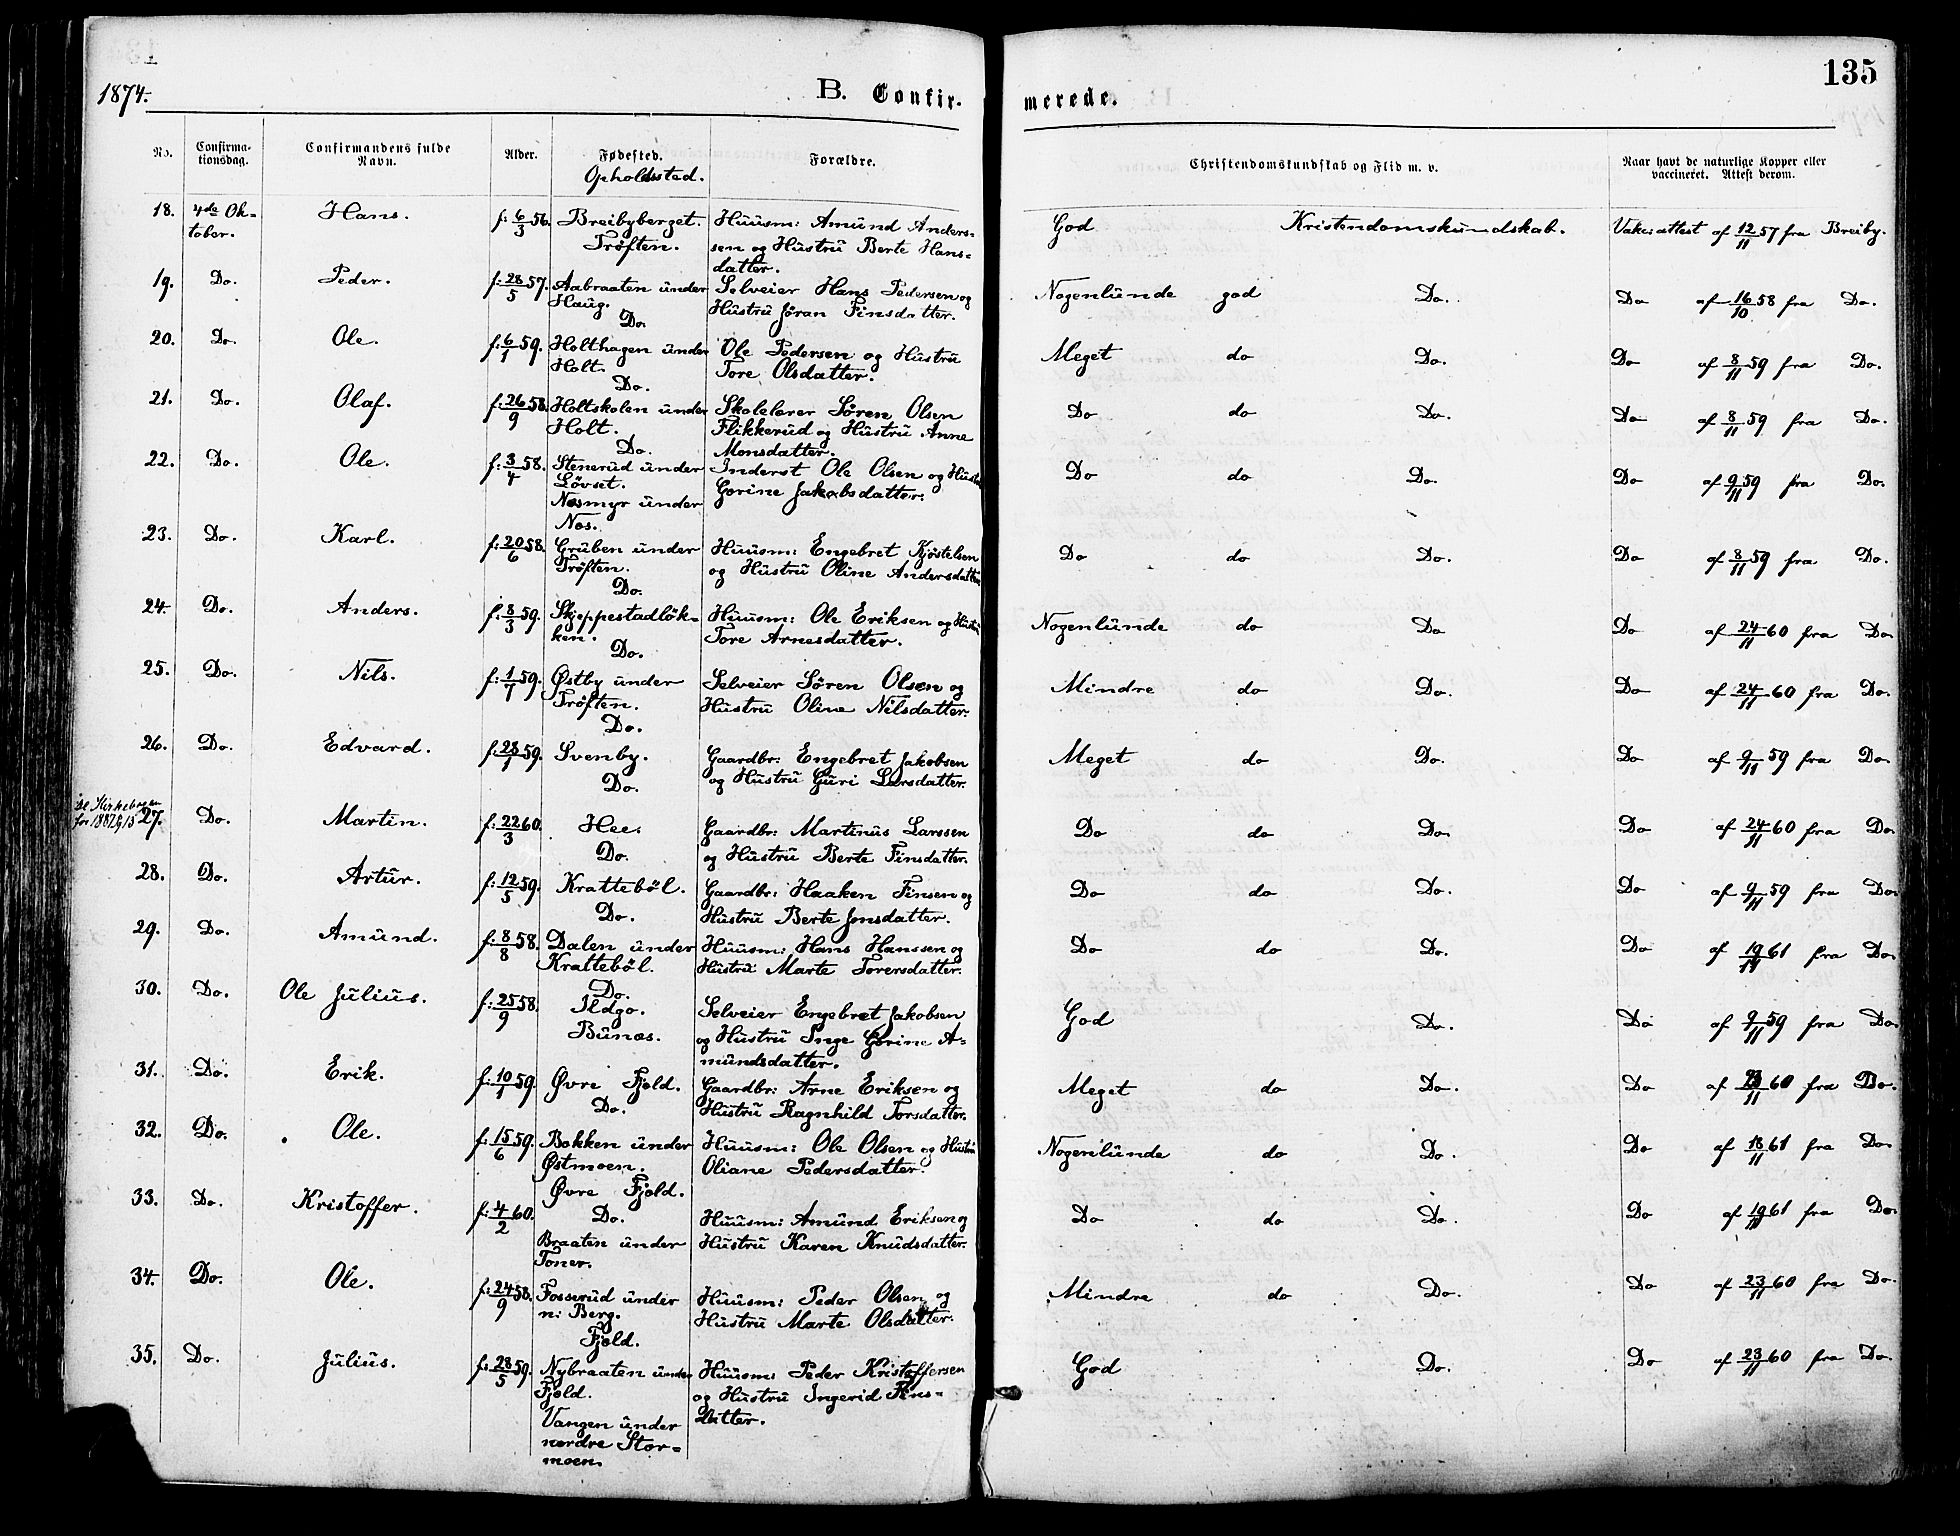 1874.
B. Confir-
merede.
135
No.
Confirma-
tionsdag.
Confirmandens fulde
Navn.
Alder.
Fødested.
Opholdssted.
Forældre.
Christendomskundskab og Flid m. v.
Naar havt de naturlige Kopper eller
vaccineret. Attest derom.
18. 4de Ok- Hans. f: 6/3 56. Breibyberget. Huusm: Amund Anders- God Kristendomskundskab. Vakc: attest af 12/11 57 fra Breiby.
tober. Trøften. sen og Hustru Berte Hans-
datter.
19. Do. Peder. f: 28/5 57. Aabraaten under Selveier Hans Pedersen og Nogenlunde god Do. Do af 16/10 58 fra Do.
Haug. Hustru Jøran Finsdatter.
Do.
20. Do. Ole. f: 6/1 59. Holthagen under Ole Pedersen og Hustru Meget do Do. Do af 8/11 59 fra Do.
Holt. Tore Olsdatter.
Do.
21. Do. Olaf. f: 26/9 58. Holtskolen under Skolelærer Søren Olsen Do do Do. Do af 8/11 59 fra Do.
Holt. Flikkerud og Hustru Anne
Do. Monsdatter.
22. Do. Ole. f: 3/4 58. Stenerud under Inderst Ole Olsen og Hustru Do do Do. Do af 9/11 59 fra Do.
Løvset. Gorine Jakobsdatter.
Næsmyr under
Næs.
23. Do. Karl. f: 20/6 58. Gruben under Huusm: Engebret Kjøstelsen Do do Do. Do af 8/11 59 fra Do.
Trøften. og Hustru Oline Andersdatter
Do.
24. Do. Anders. f: 8/3 59. Skjeppestadløk- Huusm: Ole Eriksen og Hustru Nogenlunde do Do Do af 24/11 60 fra Do.
ken. Tore Arnesdatter.
Do.
25. Do. Nils. f: 1/1 59. Østby under Selveier Søren Olsen og Mindre do Do. Do af 24/11 60 fra Do.
Trøften. Hustru Oline Nilsdatter.
Do.
26. Do. Edvard. f: 23/1 59. Svenby. Gaardbr: Engebret Jakobsen Meget do Do. Do af 9/11 59 fra Do.
Do. og Hustru Guri Larsdatter.
27. Do. Martin. f: 22/3 60. Hee. Gaardbr: Martinus Larssen Do do Do. Do af 24/11 60 fra Do.
Do. og Hustru Berte Finsdatter.
28. Do. Artur. f: 12/5 59. Krattebøl. Gaardbr: Haaken Finsen og Do do Do. Do af 9/11 59 fra Do.
Do. Hustru Berte Jonsdatter.
29. Do. Amund. f: 8/8 58. Dalen under Huusm: Hans Hanssen og Do do Do. Do af 19/11 61 fra Do.
Krattebøl. Hustru Marte Torersdatter.
Do.
30. Do. Ole Julius. f: 25/9 58. Ildjo. Selveier Engebret Jakobsen God Do. Do af 9/11 59 fra Do.
Bunæs. og Hustru Inge Gorine A-
mundsdatter.
31. Do. Erik. f: 10/1 59. Øvre Fjeld. Gaardbr: Arne Eriksen og Meget do Do. Do af 23/11 60 fra Do.
Do. Hustru Ragnhild Torsdatter.
32. Do. Ole. f: 15/6 59. Bakken under Huusm: Ole Olsen og Hustru Nogenlunde do Do. Do af 18/11 61 fra Do.
Østmoen. Oliane Pedersdatter.
Øvre Fjeld.
33. Do. Kristoffer. f: 4/2 60. Do. Huusm: Amund Eriksen og Do do Do. Do af 19/11 61 fra Do.
Braaten under Hustru Karen Knudsdatter.
Toner.
34. Do. Ole. f: 24/9 58. Fosserud under Huusm: Peder Olsen og Mindre do Do. Do af 23/11 60 fra Do.
n: Berg. Hustru Marte Olsdatter.
Fjeld.
35. Do. Julius. f: 28/5 59. Nybraaten under Huusm: Peder Kristoffersen God Do. Do af 23/11 60 fra Do.
Fjeld. og Hustru Ingerid Fins-
Vangen under datter.
nordre Stor-
moen.